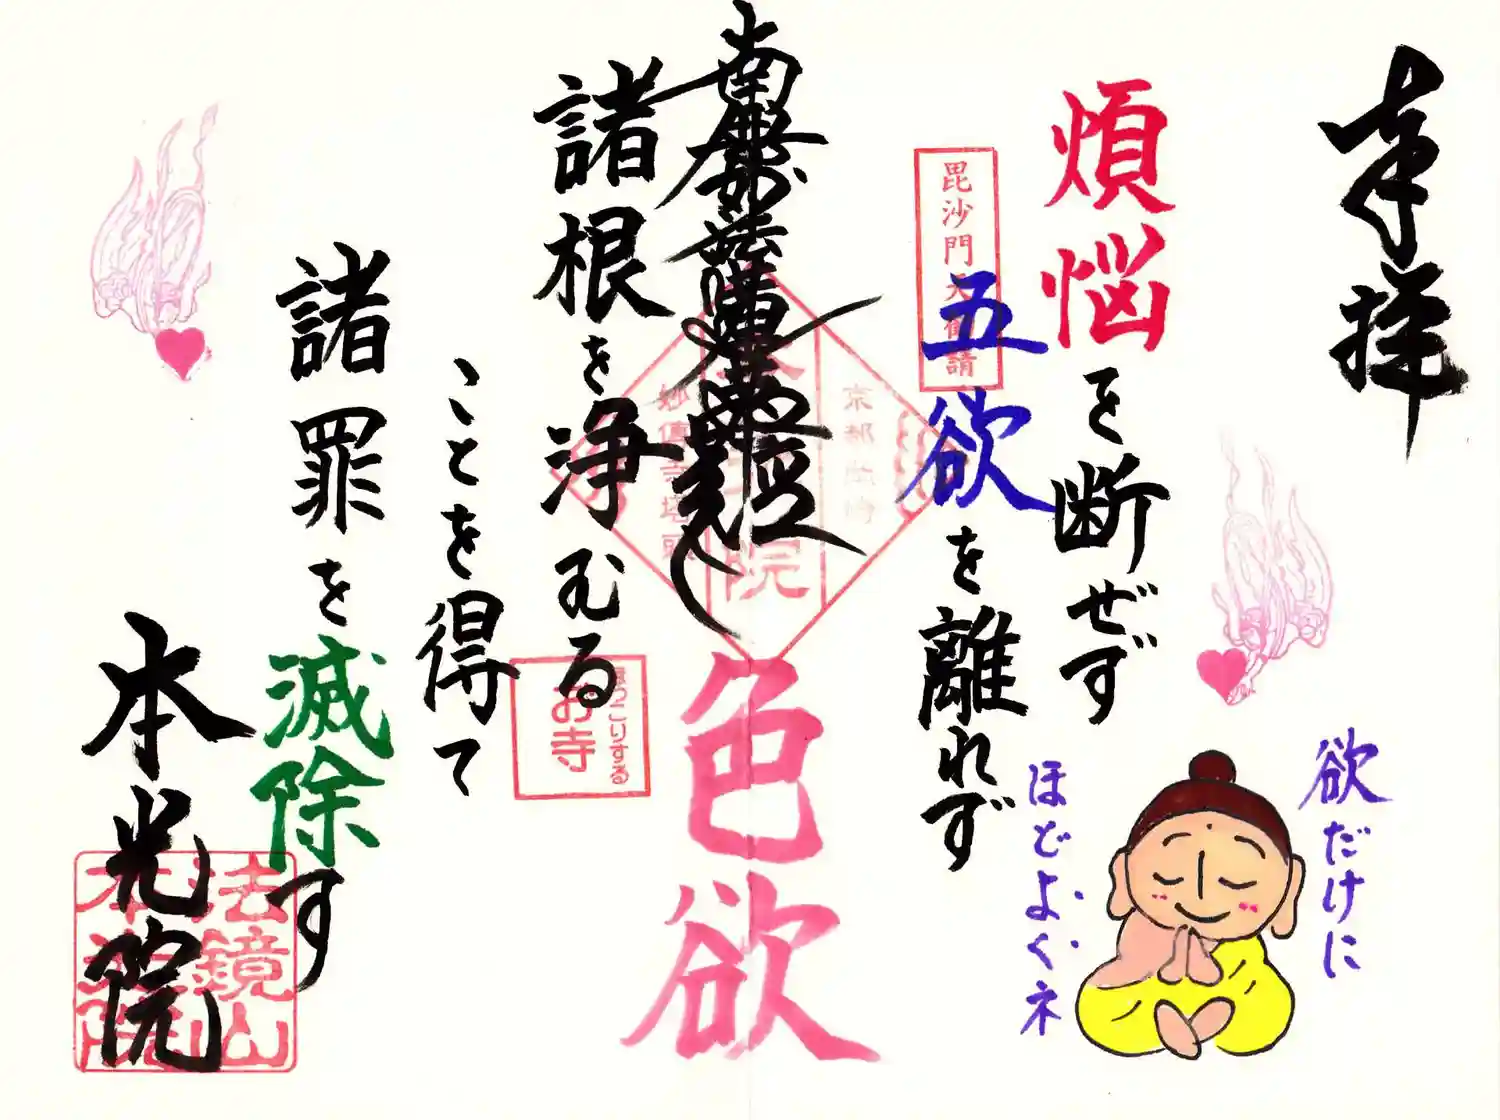 奉拝
煩悩を断ぜず
五欲を離れず
毘沙門天勧請
南無妙法蓮華経
色欲
京都山崎
院
妙傳寺塔頭
諸根を浄むる
ことを得て
ほっこりする
お寺
諸罪を滅除す
本光院
法鏡山
本光院
欲だけに
ほどよくネ